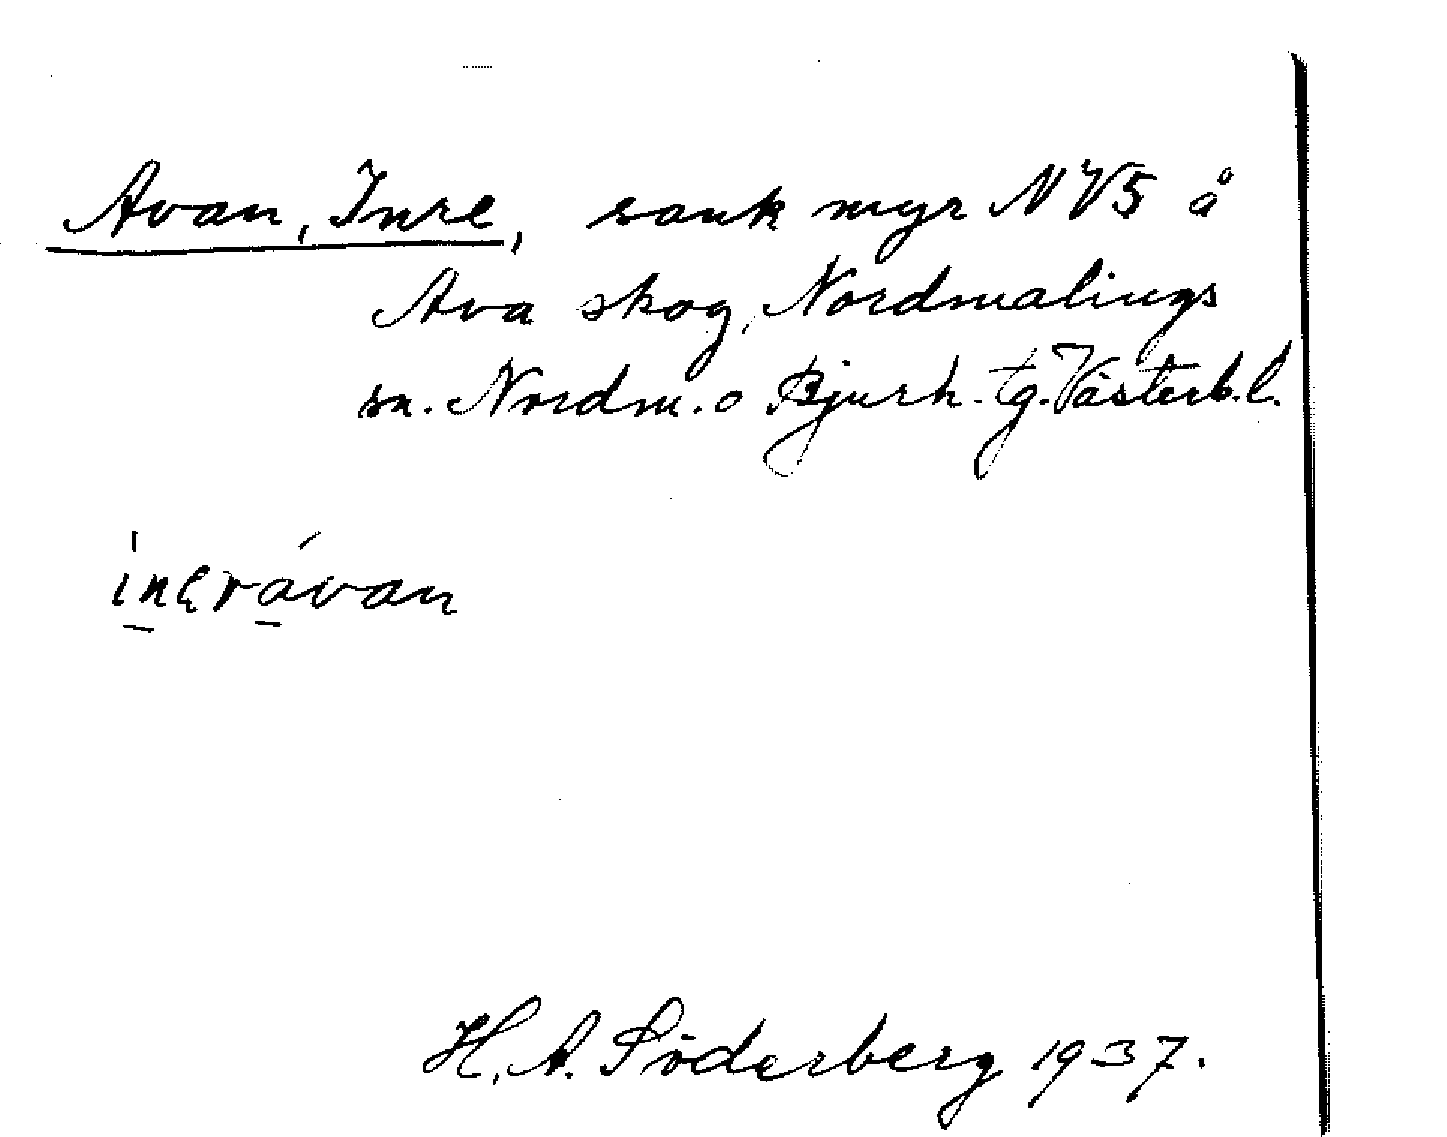 Avan, Inre, sank myr NV5 å
Ava skog, Nordmalings
sn. Nordm. o Bjurh. tg. Västerb. l.
ìnɛrávan
H. A. Söderberg 1937.